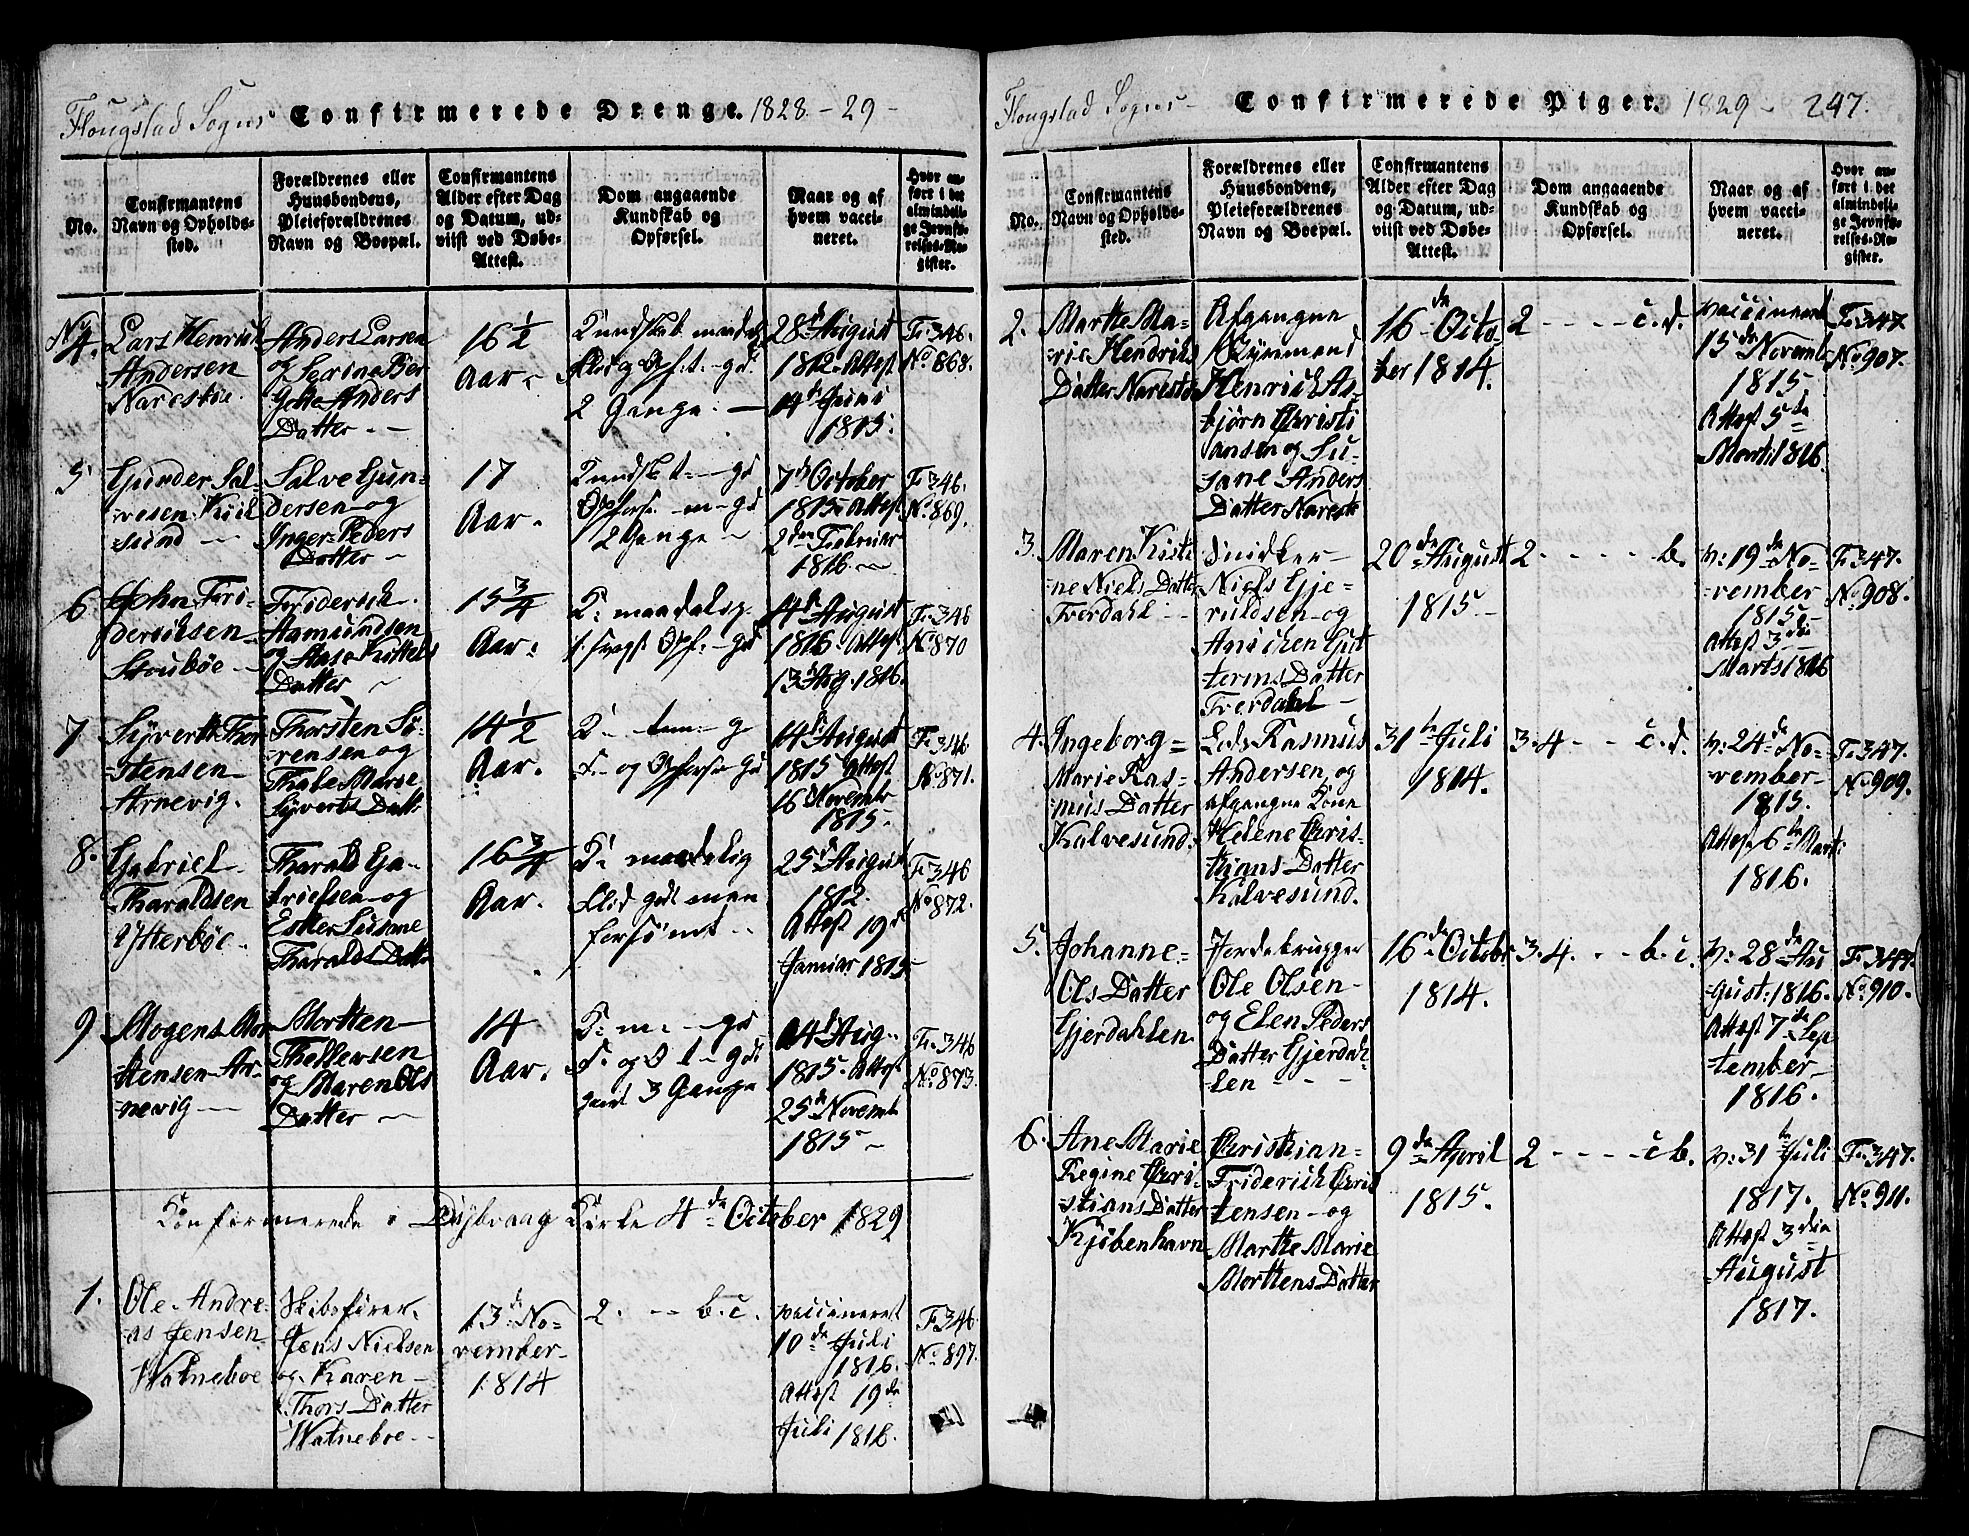 Flougstad Sogns Confirmerede Drenge. 1828-29-
No.
Confirmantens
Navn og Opholds-
sted.
Forældrenes eller
Huusbondens,
Pleieforældrenes
Navn og Boepæl.
Confirmantens
Alder efter Dag
og Datum, ud-
viist ved Døbe-
Attest.
Dom angaaende
Kundskab og
Opførsel.
Naar og af
hvem vacci-
neret.
Hvor an-
ført i det
almindeli-
ge Jevnfø-
relses-Re-
gister.
No 4.
Lars Henrich
Andersen
Narestøe.
Anders Larsen
og Serina Ber
Gitte Anders
Datter - -
16 1/2
Aar.
Kundskab maadel
2 Gange. -
28d August
1812. Attest
14d Juni
1815.
F. 346.
No 868.
5
Gunder Sal-
vesen Kiil-
sund -
Salve Gun-
dersen og
Inger Peders
Datter -
17
Aar.
Kundsk. t - gd
Opførse - m - gd
2 Gange -
7d October
1815. Attest
2den Februar
1816. -
F. 346.
No 869.
6
John Fri-
deriksen
Stoubøe -
Friderich
Aamundsen
og Aase Kittels
Datter -
15 3/4
Aar.
K. maadelig
Opf. - gd
14d August
1816. Attest
13d Aug. 1816.
F. 346
No 870
7
Syvert Thor-
stensen
Arnevig.
Thorsten Sö-
rensen og
Thale Marie
Syverts Datt
14 1/2
Aar.
K - tem - g
F. og Opførse gd
14d August
1815 Attest
16d November
1815.
F. 346
No 871.
8.
Gabriel
Tharaldsen
Ytterbøe.
Tharald Ga-
brielsen og
Ester Susanne
Tharalds Datter
16 3/4
Aar.
K. maadelig
Flid godt men
forsömt -
25d August
1812.
Attest 19d
Januar 1815
F. 346
No 872.
9
Mogens Mor-
tensen Ar-
nevig -
Mortten
Thellevsen
og Maren Ols
Datter -
14
Aar.
K. m. - gd
F. og O t - godt
3 Gange
14d Aug.
1815. Attest
25d Novemb
1815 -
F. 346
No 873.
Confirmerede i Dybvaag Kirke 4de October 1829
1.
Ole Andre-
as Jensen
Watneboe
Skibsfører
Jens Nielsen
og Karen
Thors Datter
Watneboe.
13d No-
vember
1814
2. - - b. c.
vaccineret
10de Juli
1816.
Attest 19de
Juli 1816.
F. 346.
No 897.
Flougstad Sogns- Confirmerede Piger. 1829- 247.
No.
Confirmantens
Navn og Opholds-
sted.
Forældrenes eller
Huusbondens,
Pleieforældrenes
Navn og Boepæl.
Confirmantens
Alder efter Dag
og Datum, ud-
viist ved Døbe-
Attest.
Dom angaaende
Kundskab og
Opførsel.
Naar og af
hvem vacci-
neret.
Hvor an-
ført i det
almindeli-
ge Jevnfø-
relses-Re-
gister.
2.
Marthe Ma-
rie Hendriks
Datter Narestø
Afgangne
Henrich As-
björn Christi
ansen og Su-
sane Anders
Datter Narestø
16de Octo-
ber 1814.
2 - - - - c. d.
vaccineret
15de Novemb
1815.
Attest 5te
Marts 1816.
F. 347
No 907.
3.
Maren Kisti
-ne Niels Datter
Tverdahl -
Snidker
Niels Gje-
ruldsen og
Anichen Gut
terms Datter
Tverdahl -
20de August
1815 -
2. - - - - b.
v: 19de No-
vember
1815. -
Attest 3die
Marts 1816
F. 347.
No 908.
4.
Ingeborg
Marie Ras-
mus Datter
Kalvesund.
Lods Rasmus
Andersen og
afgangne Kone
Helene Chris-
tians Datter
Kalvesund.
31te Juli
1814.
3. 4 - - - c. d.
v: 24de No-
vember
1815.
Attest 6te Mart:
1816.
F. 347.
No 909.
5.
Johanne
Ols Datter
Gjerdahlen
Jordebrugger
Ole Olsen
og Elen Peders
Datter Gjerdah-
len - - -
16de October
1814.
3. 4. - - b. c.
v: 28de Au
gust: 1816.
Attest 7de Sep
tember
1816.
F. 347.
No 910.
6.
Ane Marie
Regine Chri-
stians Datter
Kjöbenhavn
Christian
Friderich Chris
tensen og
Marthe Marie
Morttens Datter
9de April
1815.
2 - - - - c b.
v: 31te Juli
1817.
Attest 3die
August
1817.
F. 347.
No 911.